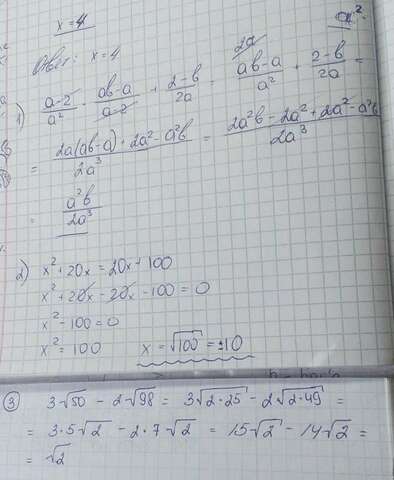 x = 4
a².
Ответ: x = 4
1) (a-2)/a² · (ab-a)/(a-2) + (2-b)/2a = (ab-a)/a² + (2-b)/2a =
= (2a(ab-a) + 2a² - a²b)/2a³ = (2a²b - 2a² + 2a² - a²b)/2a³
= a²b/2a³
2) x² + 20x = 20x + 100
x² + 20x - 20x - 100 = 0
x² - 100 = 0
x² = 100 x = √100 = ±10
③ 3√50 - 2√98 = 3√2·25 - 2√2·49 =
= 3·5√2 - 2·7√2 = 15√2 - 14√2 =
= √2